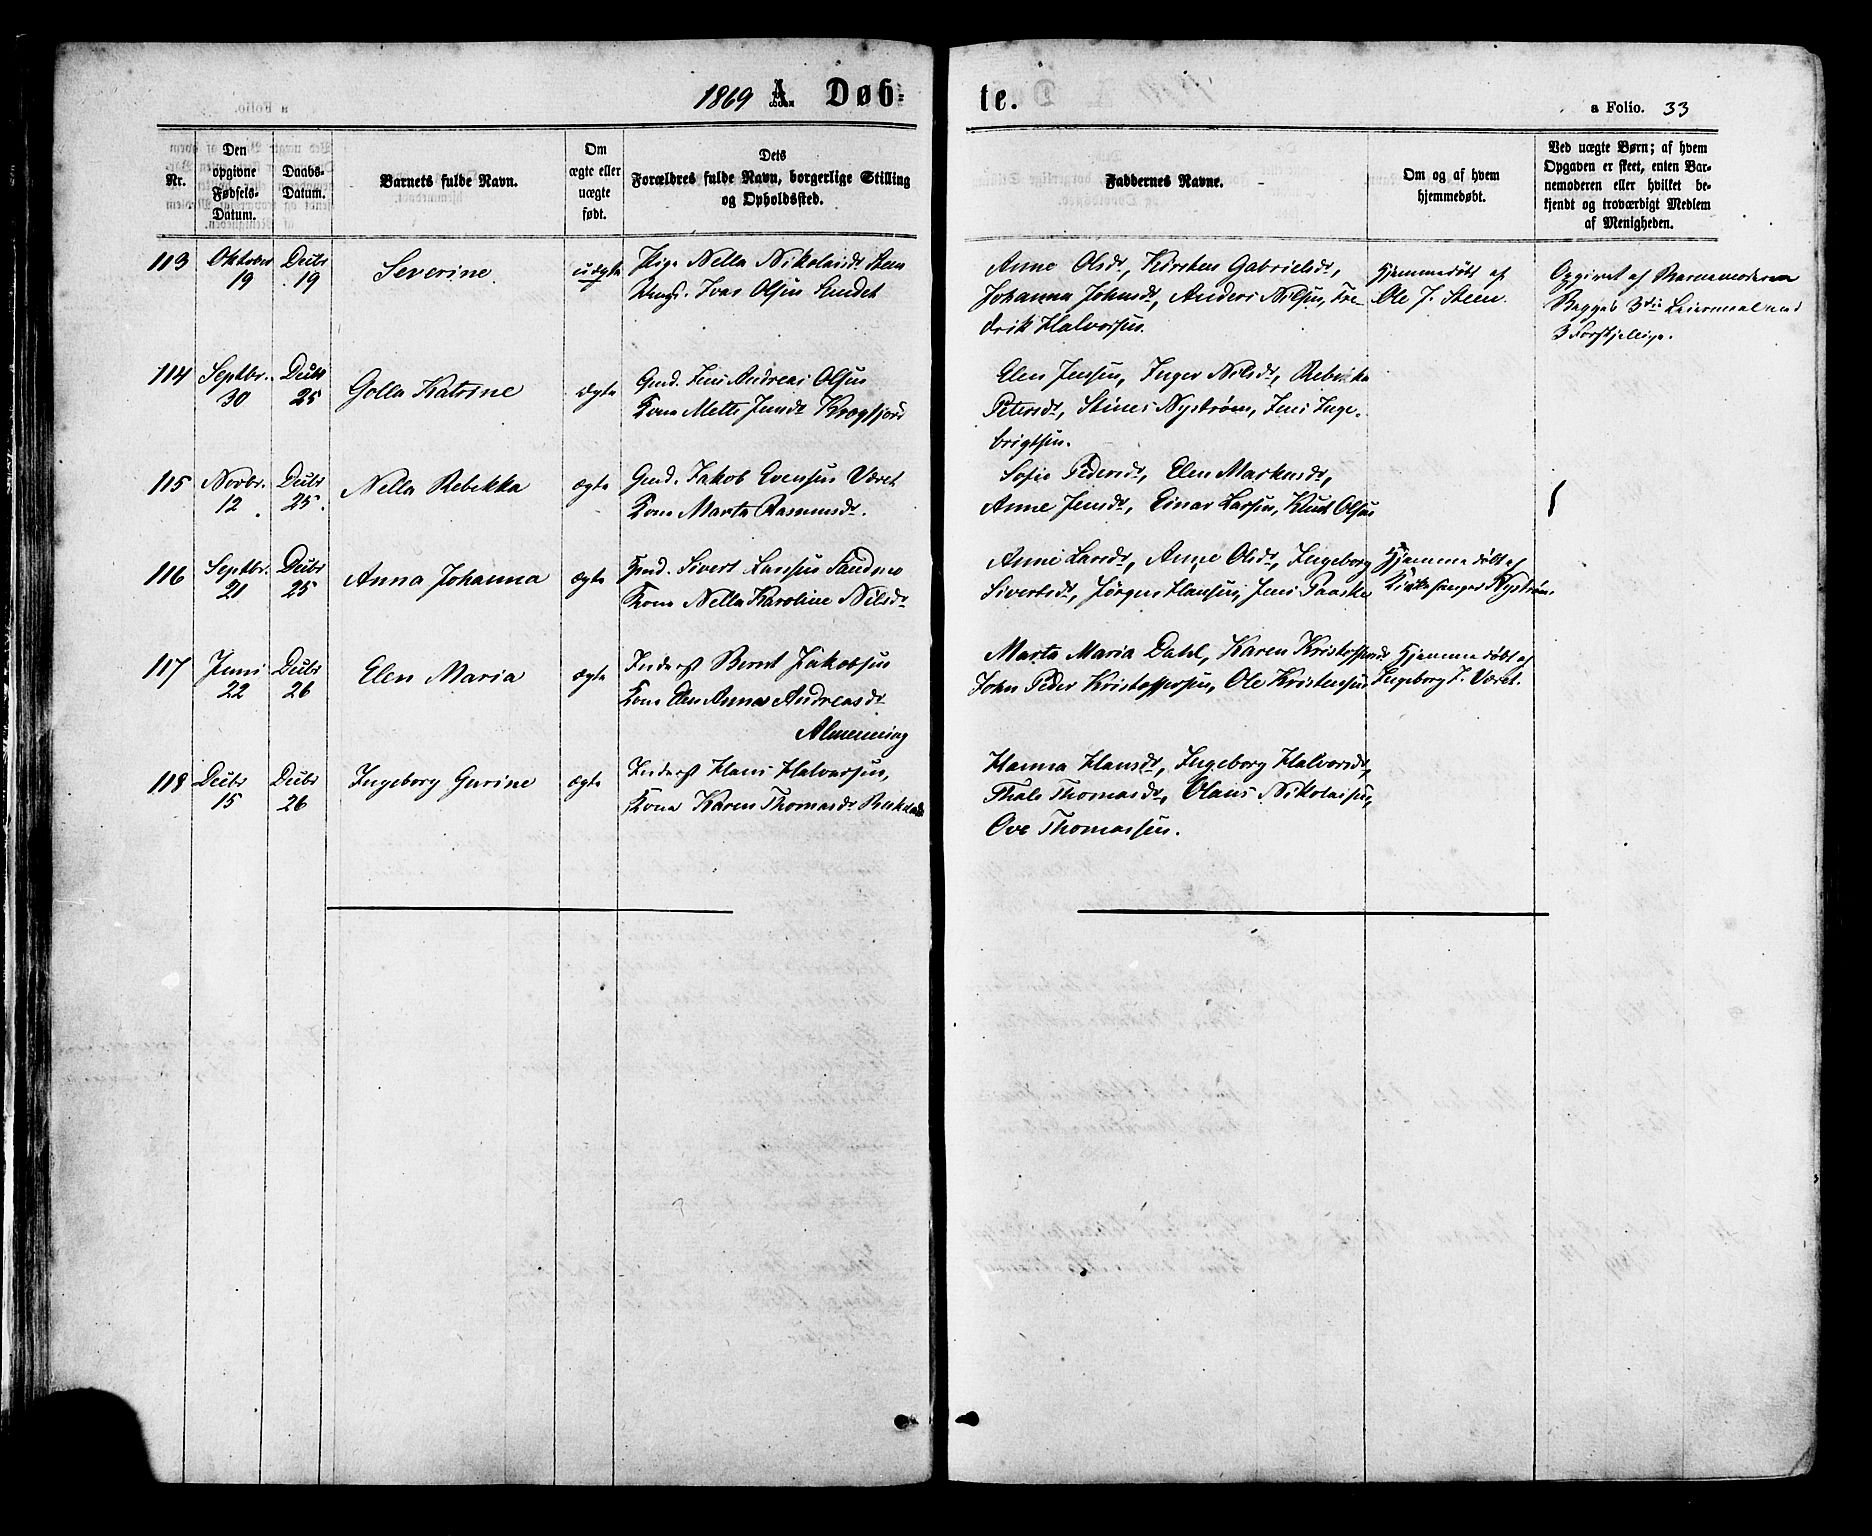 1869 A Døb-
te.
a Folio. 33
Nr.
Den opgivne Fødsels-Datum.
Daabs-Datum.
Barnets fulde Navn.
Om ægte eller uægte født.
Dets Forældres fulde Navn, borgerlige Stilling og Opholdssted.
Faddernes Navne.
Om og af hvem hjemmedøbt.
Ved uægte Børn; af hvem Opgaven er skeet, enten Barnemoderen eller hvilket bekjendt og troværdigt Medlem af Menigheden.
113 Oktober 19 Decbr 19 Severine uægte
Pige Nella Nikolaisdt Steen
Ungk. Ivar Olsen Sundet
Anne Olsdt, Kirsten Gabrielsdt,
Johanna Johnsdt, Anders Nilsen, Fre-
drik Halvorsen.
Hjemmedøbt af
Ole J. Steen.
Opgivet af Barnemoderen
Begges 3die Leiermaal med
3 Forskjellige.
114 Septbr. 30 Decbr 25 Golla Katrine ægte
Gmd. Jens Andreas Olsen
Kone Mette Jensdt Krogfjord
Elen Jensen, Inger Nilsdt, Rebekka
Petersdt, Stines Nystrøm, Jens Inge-
brigtsen.
115 Novbr. 12 Decbr 25. Nella Rebekka ægte
Gmd. Jakob Evensen Været
Kone Marta Rasmusdt.
Sofie Pedersdt, Elen Markusdt,
Anne Jensdt, Einar Larsen, Knut Olsen
116 Septbr. 21 Decbr 25 Anna Johanna ægte
Gmd. Sivert Hansen Sandmo
Kone Nella Karoline Nilsdt
Anne Larsdt, Anne Olsdt, Ingeborg
Sivertsdt, Jørgen Hansen, Jens Paaske
Hjemmedøbt af
Kirkesanger Nystrøm.
117 Juni 22 Decbr 26 Elen Maria ægte
Inderst Bernt Jakobsen
Kone Elen Anna Andreasdt
Almenning
Marta Maria Dahl, Karen Kristoffersdt
John Peder Kristoffersen, Ole Kristensen
Hjemmedøbt af
Ingeborg J. Været.
118 Decbr 15 Decbr 26 Ingeborg Gurine ægte
Inderst Hans Halvorsen,
Kone Karen Thomasdt
Hanna Hansdt, Ingeborg Halvorsdt,
Thale Thomasdt, Olaus Nikolaisen,
Ove Thomassen.